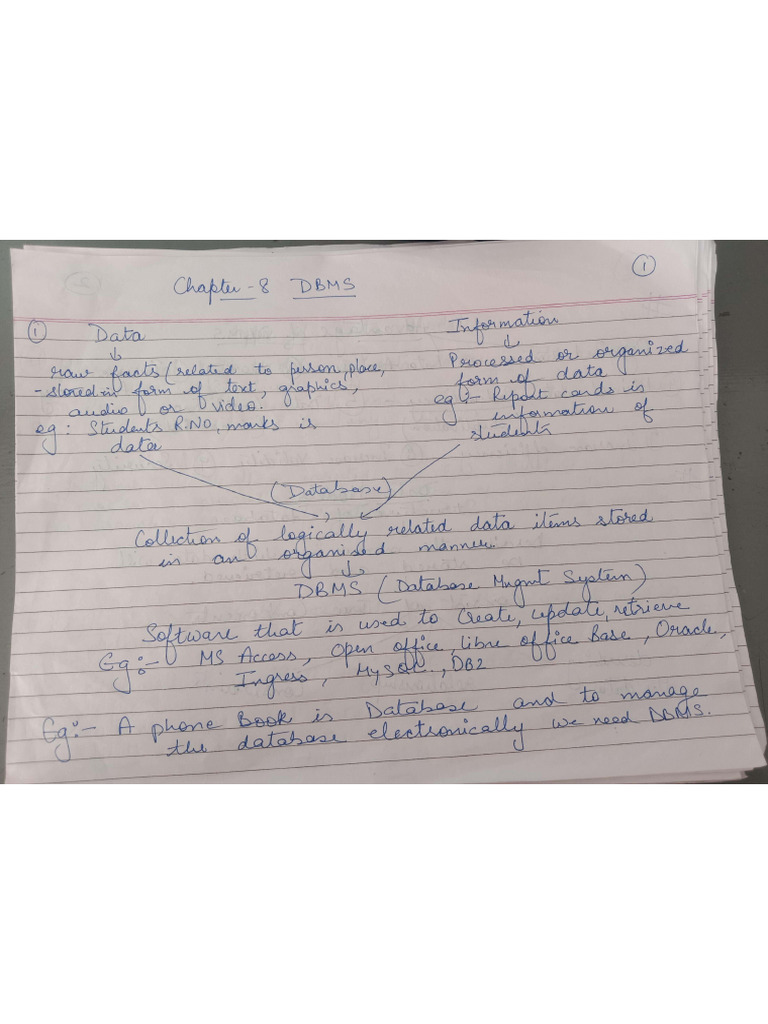 1
Chapter-8 DBMS
1 Data
Information
↓
↓
raw facts (related to person, place,
- stored in form of text, graphics,
audio or video.
eg: Students R.No, marks is
data
Processed or organized
form of data
eg:- Report cards is
information of
students
(Database)
Collection of logically related data items stored
in an organised manner.
↓
DBMS (Database Mngmt System)
Software that is used to Create, update, retrieve
Eg:- MS Access, Open office, libre office Base, Oracle,
Ingress, MySQL, DB2
Eg:- A phone Book is Database and to manage
the database electronically we need DBMS.